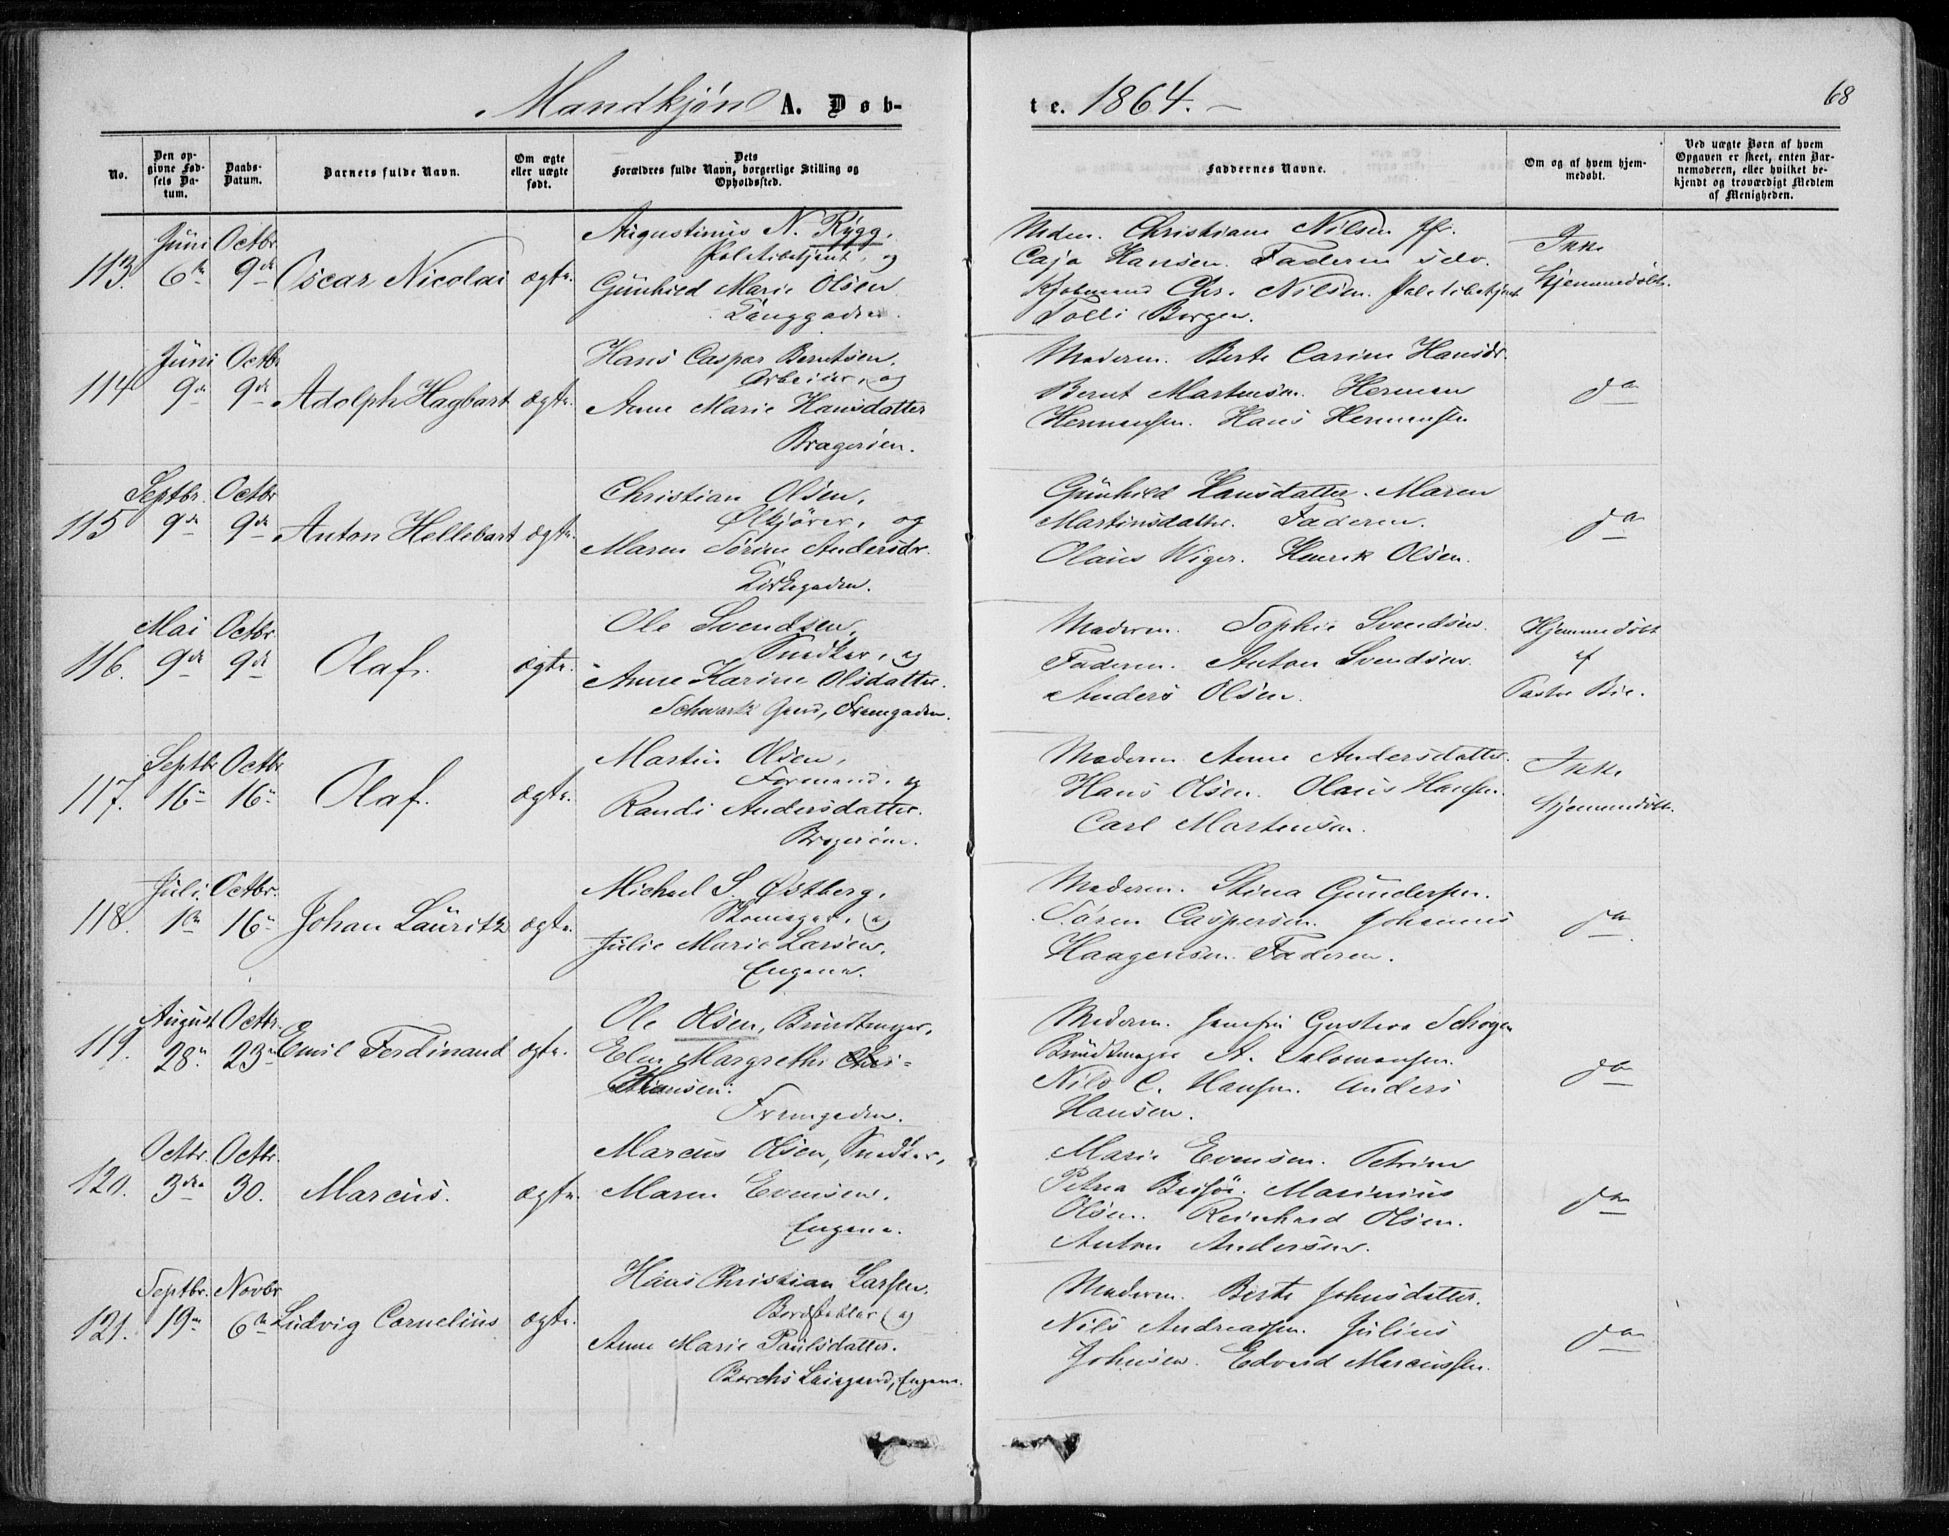 Mandkjøn A. Døb-
te. 1864. –
68
No.
Den op-
givne Fød-
sels Da-
tum.
Daabs-
Datum.
Barnets fulde Navn.
Om ægte
eller uægte
født.
Dets
Forældres fulde Navn, borgerlige Stilling og
Opholdssted.
Faddernes Navne.
Om og af hvem hjem-
medøbt.
Ved uægte Børn af hvem
Opgaven er skeet, enten Bar-
nemoderen, eller hvilket be-
kjendt og troværdigt Medlem
af Menigheden.
113. Juni 6te Octbr. 9de Oscar Nicolai ægte.
Augustinus N. Rygg,
Politibetjent, og
Gunhild Marie Olsen
Langgaden.
Christiane Nilsen
Caja Hansen. Faderen selv.
Kjøbmand Chr. Nilsen. Politibetjent
Borgen.
Ikke
hjemmedøbt.
114 Juni 9de Octbr. 9de Adolph Hagbart ægte.
Hans Caspar Berntsen,
Arbeider, og
Anne Marie Hansdatter
Bragerøen.
Moderen. Berte Carine Hansdr.
Bernt Martinsen. Herman
Hermansen. Hans Hermansen
do
115 Septbr. 9de Octbr. 9de Anton Hellebart ægte.
Christian Olsen,
Ølkjører, og
Maren Sørine Andersdr.
Kirkegaden.
Gunhild Hansdatter. Maren
Martinsdatter. Faderen.
Olaus Wiger. Henrik Olsen.
do
116. Mai 9de Octbr. 9de Olaf. ægte.
Ole Svendsen,
Snedker, og
Anne Karine Olsdatter.
Schwartz Gaard, Fremgaden.
Moderen. Sophie Svendsen.
Faderen. Anton Svendsen.
Anders Olsen.
Hjemmedøbt
af
Pastor Bie.
117. Septbr. 16de Octbr. 16de Olaf. ægte.
Martin Olsen,
Formand, og
Randi Andersdatter.
Bragerøen.
Moderen Anne Andersdatter.
Hans Olsen. Olaus Hansen.
Carl Martinsen.
Ikke
hjemmedøbt.
118. Juli. 1ste Octbr. 16de Johan Lauritz ægte.
Michael S. Østberg,
Skomager, og
Julie Marie Larsen,
Engene.
Moderen. Stina Gundersen.
Søren Caspersen. Johannes
Haagensen. Faderen.
do
119. August 28de Octbr. 23de Emil Ferdinand ægte.
Ole Olsen, Bundtmager,
Elen Margrethe
Hansen.
Fremgaden.
Moderen. Gustava
Bundtmager A. Salomonsen.
Nils C. Hansen. Anders
Hansen.
do
120. Octbr. 3die Octbr. 30. Marcus. ægte.
Marcus Olsen, Snedker,
Maren Evensen.
Engene.
Marie Evensen. Petrine
Marinius
Olsen. Reinhard Olsen.
Anton Andersen.
do
121. Septbr. 19de Novbr. 6te Ludvig Cornelius ægte.
Hans Christian Larsen,
Bordstabler, og
Anne Marie Paulsdatter.
Borchs Gaard, Engene.
Moderen. Berte Johnsdatter.
Nils Andreasen. Julius
Johnsen. Edvard Marcussen.
do